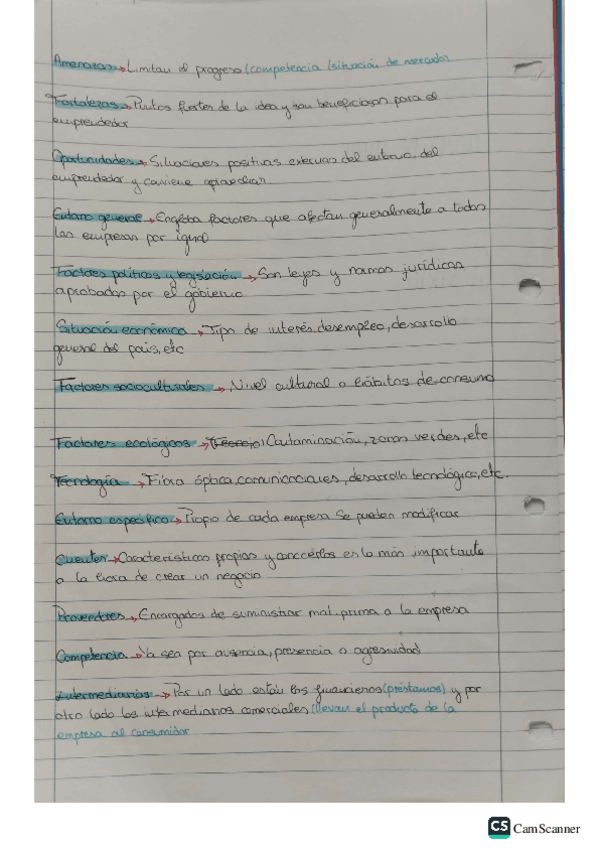 Amenazas → Limitan el progreso (competencia (situación de mercado)
Fortalezas → Puntos fuertes de la idea y son beneficiosos para el
emprendedor
Oportunidades → Situaciones positivas externas del entorno del
emprendedor y conviene aprovechar
Entorno general → Engloba factores que afectan generalmente a todas
las empresas por igual
Factores políticos y legislación → Son leyes y normas jurídicas
aprobadas por el gobierno
Situación económica → Tipo de interés, desempleo, desarrollo
general del país, etc
Factores socioculturales → Nivel cultural o hábitos de consumo
Factores ecológicos → Contaminación, zonas verdes, etc
Tecnología → Fibra óptica, comunicaciones, desarrollo tecnológico, etc.
Entorno específico → Propio de cada empresa Se pueden modificar
→ Características propias y conocerlos es lo más importante
a la hora de crear un negocio
Proveedores → Encargados de suministrar mat. prima a la empresa
Competencia → Ya sea por ausencia, presencia o agresividad
Intermediarios → Por un lado están los financieros (préstamos) y por
otro lado los intermediarios comerciales (llevan el producto de la
empresa al consumidor
CS CamScanner